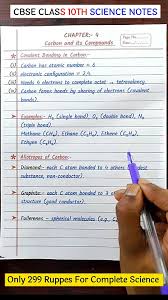 CBSE CLASS 10TH SCIENCE NOTES
CHAPTER:- 4
Carbon and its Compounds
Page No.
Date
* Covalent Bonding in Carbon:-
(i) Carbon has atomic number = 6
(ii) electronic configuration = 2,4
(iii) Needs 4 electrons to complete octet → tetravalency.
(iv) Carbon forms bonds by sharing of electrons (covalent bonds).
➤ Examples:- H₂ (single bond), O₂ (double bond), N₂
(triple bond)
Methane (CH₄), Ethane (C₂H₆), Ethene (C₂H₄),
Ethyne (C₂H₂).
* Allotropes of Carbon:-
➤ Diamond:- each C atom bonded to 4 others
substance, non-conductor).
➤ Graphite:- each C atom bonded to 3
structure (good conductor).
➤ Fullerenes:- spherical molecules (e.g., C
Only 299 Ruppes For Complete Science